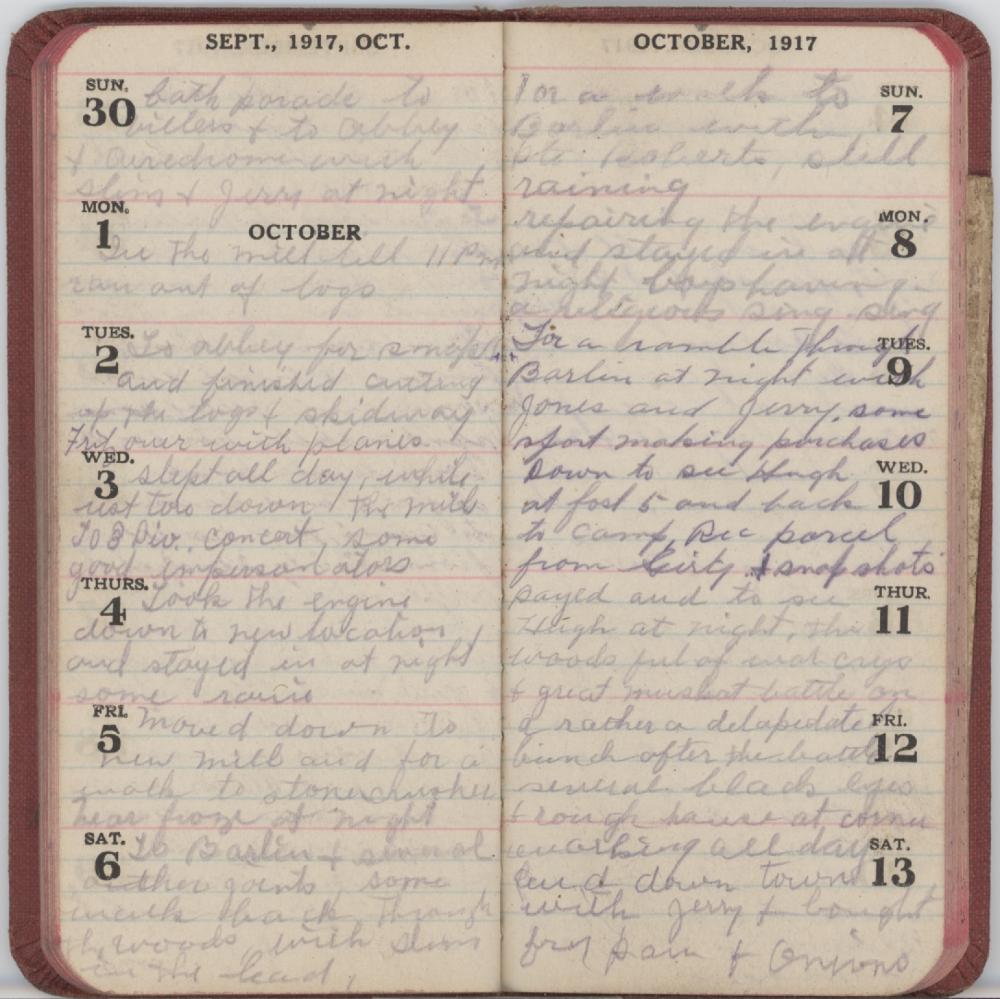 SEPT., 1917, OCT.
SUN.
30 bath parade to
villers & to abbey
& Auredrome with
slim & Jerry at night
MON.
1 OCTOBER
In the mill till 11 Pm
ran out of logs
TUES.
2 To abbey for snaps
and finished cutting
up the logs & skidway
Fritz over with planes
WED.
3 slept all day, while
just tore down the mill
To 3 Div. concert, some
good impersonators
THURS.
4 Took the engine
down to new location
and stayed in at night
some raine
FRI.
5 Moved down to
new mill and for a
walk to stonecrusher
near froze at night
SAT.
6 To Barlin & several
outher joints, some
walk back through
the woods with slim
in the lead,
OCTOBER, 1917
SUN.
7
For a walk to
Barlin with
Pte Roberts, still
raining
MON.
8
repairing the engine
and stayed in at
night boys having
a religious sing sing
TUES.
9
For a ramble through
Barlin at night with
Jones and Jerry, some
sport making purchases
WED.
10
Down to see Hugh
at fosl 5 and back
to camp, Rec parcel
from Girty & snapshots
THUR.
11
payed and to see
Hugh at night, the
woods ful of war crys
& great muskat battle on
FRI.
12
a rather a delapidate
bunch after the battle
several black eyes
& rough house at corner
SAT.
13
working all day
and down town
with Jerry & bought
fry pan & Onions